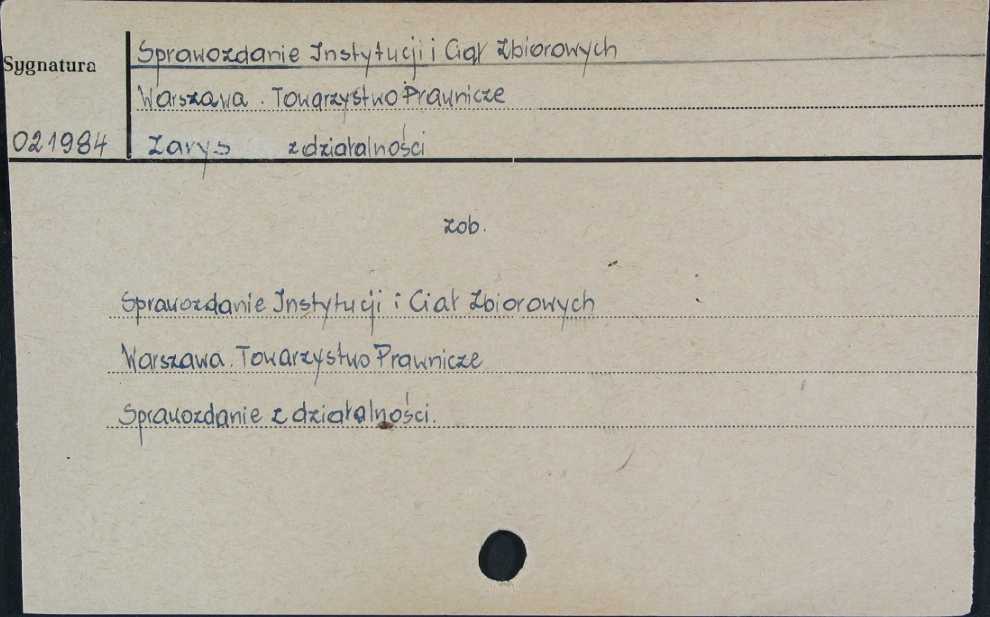 Sprawozdanie Instytucji i Ciał Zbiorowych
Sygnatura
Warszawa. Towarzystwo Prawnicze
021984 Zarys z działalności
zob.
Sprawozdanie Instytucji i Ciał Zbiorowych
Warszawa. Towarzystwo Prawnicze
Sprawozdanie z działalności.